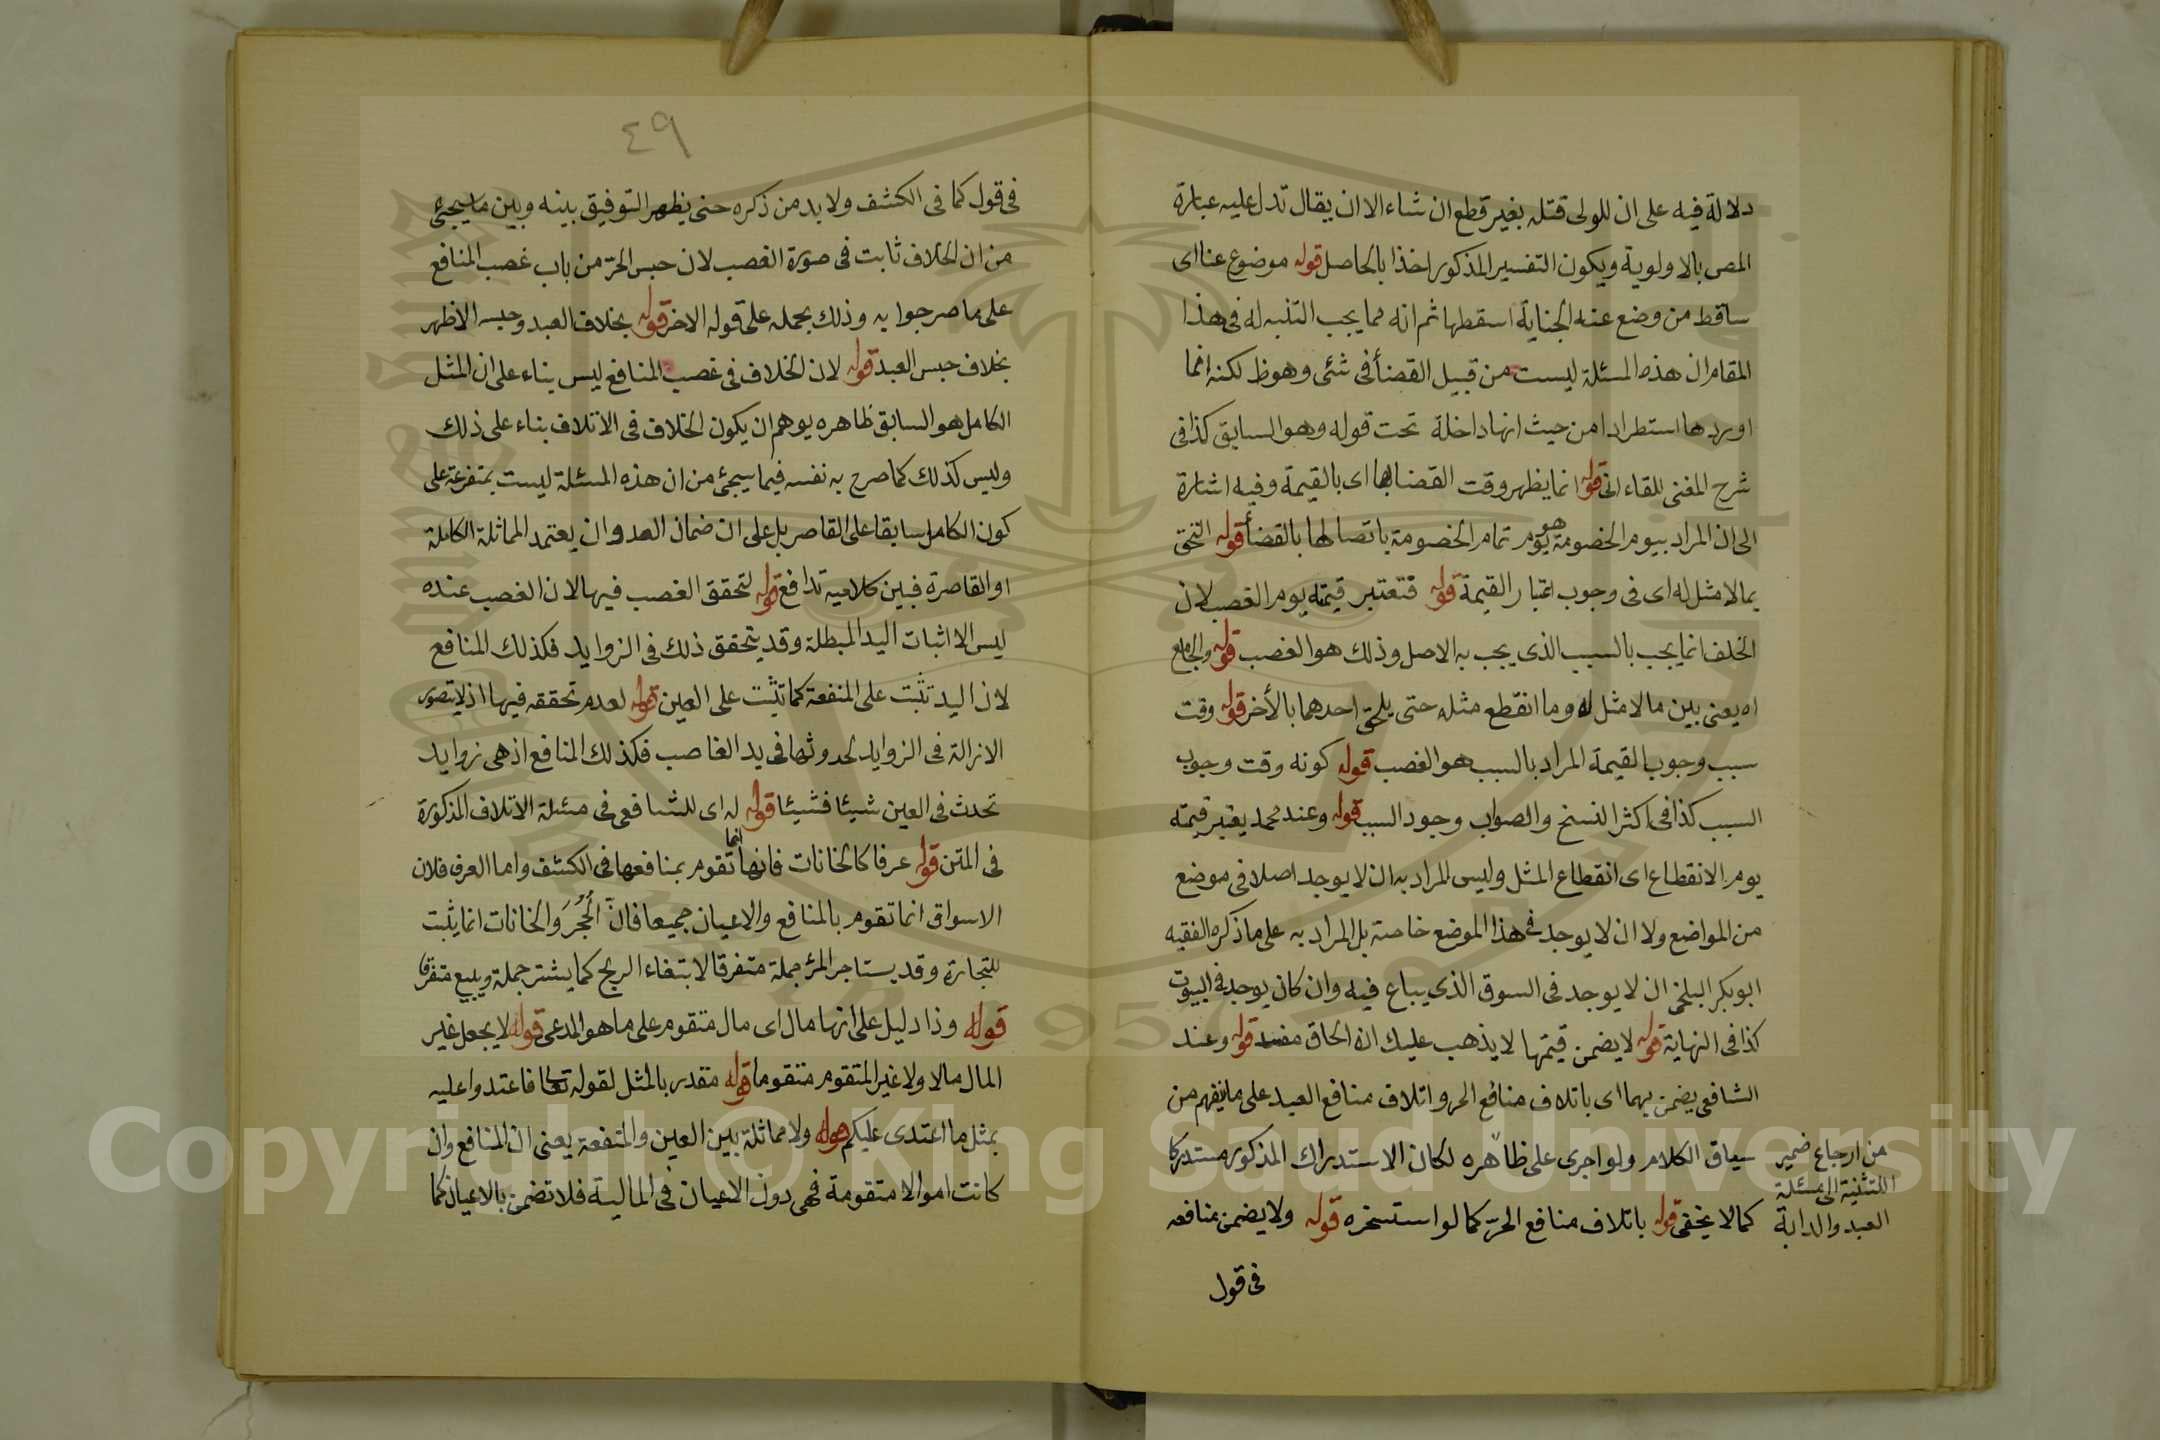 دلالة فيه على ان للولى قتله بغير قطع ان شاء الا ان يقال تدل عليه عبارة
المص بالاولوية ويكون التفسير المذكور اخذا بالحاصل قوله موضوع عنا اى
ساقط من وضع عنه الجناية اسقطها ثم انه مما يجب التنبه له فى هذا
المقام ان هذه المسئلة ليست من قبيل القضأ فى شئ وهو ظ لكنه انما
اوردها استطرادا من حيث انها داخلة تحت قوله وهو السابق كذا فى
شرح المغنى للقاءانى قوله انما يظهر وقت القضا بها اى بالقيمة وفيه اشارة
الى ان المراد بيوم الخصومة هو يوم تمام الخصومة باتصالها بالقضأ قوله التحق
بما لا مثل له اى فى وجوب اعتبار القيمة قوله فتعتبر قيمته يوم الغصب لان
الخلف انما يجب بالسبب الذى يجب به الاصل وذلك هو الغصب قوله والجامع
اه يعنى بين ما لا مثل له وما انقطع مثله حتى يلحق احدهما بالأخر قوله وقت
سبب وجوب القيمة المراد بالسبب هو الغصب قوله كونه وقت وجوب
السبب كذا فى اكثر النسخ والصواب وجود السبب قوله وعند محمد يعتبر قيمته
يوم الانقطاع اى انقطاع المثل وليس المراد به ان لا يوجد اصلا فى موضع
من المواضع ولا ان لا يوجد فى هذا الموضع خاصة بل المراد به على ما ذكره الفقيه
ابوبكر البلخى ان لا يوجد فى السوق الذى يباع فيه وان كان يوجد فى البيوت
كذا فى النهاية قوله لا يضمن قيمتها لا يذهب عليك ان الحاق قوله وعند
الشافعى يضمن بهما اى باتلاف منافع الحر واتلاف منافع العبد على ما يفهم من
سياق الكلام ولو اجرى على ظاهره لكان الاستدراك المذكور مستدركا
كما لا يخفى قوله باتلاف منافع الحرّ كما لو استسخره قوله ولا يضمن منافعه
من ارجاع ضمير
التثنية الى مسئلة
العبد والدابة
فى قول
٤٩
فى قول كما فى الكشف ولا بد من ذكره حتى يظهر التوفيق بينه وبين ما سيجئ
من ان الخلاف ثابت فى صورة الغصب لان حبس الحرّ من باب غصب المنافع
على ما صرحوا به وذلك بحمله على قوله الاخر قوله بخلاف العبد وحبسه الاظهر
بخلاف حبس العبد قوله لان الخلاف فى غصب المنافع ليس بناء على ان المثل
الكامل هو السابق ظاهره يوهم ان يكون الخلاف فى الاتلاف بناء على ذلك
وليس كذلك كما صرح به نفسه فيما سيجئ من ان هذه المسئلة ليست بمتفرعة على
كون الكامل سابقا على القاصر بل على ان ضمان العدوان يعتمد المماثلة الكاملة
او القاصرة فبين كلاميه تدافع قوله لتحقق الغصب فيها لان الغصب عنده
ليس الا اثبات اليد المبطلة وقد يتحقق ذلك فى الزوايد فكذلك المنافع
لان اليد تثبت على المنفعة كما تثبت على العين قوله لعدم تحققه فيها اذ لا يتصور
الازالة فى الزوايد لحدوثها فى يد الغاصب فكذلك المنافع اذ هى زوايد
تحدث فى العين شيئا فشيئا قوله له اى للشافعى فى مسئلة الاتلاف المذكورة
فى المتن قوله عرفا كالخانات فانها انما تقوم بمنافعها فى الكشف واما العرف فلان
الاسواق انما تقوم بالمنافع والاعيان جميعا فان الحُجُرَ والخانات انما يثبت
للتجارة وقد يستاجر المرء جملة متفرقا لابتغاء الربح كما يشتر جملة ويبيع متفرقا
قوله وذا دليل على انها مال اى مال متقوم على ما هو المدعى قوله لا يجعل غير
المال مالا ولا غير المتقوم متقوما قوله مقدر بالمثل لقوله تعالى فاعتدوا عليه
بمثل ما اعتدى عليكم قوله ولا مماثلة بين العين والمنفعة يعنى ان المنافع وان
كانت اموالا متقومة فهى دون الاعيان فى المالية فلا تضمن بالاعيان كما
Copyright © King Saud University